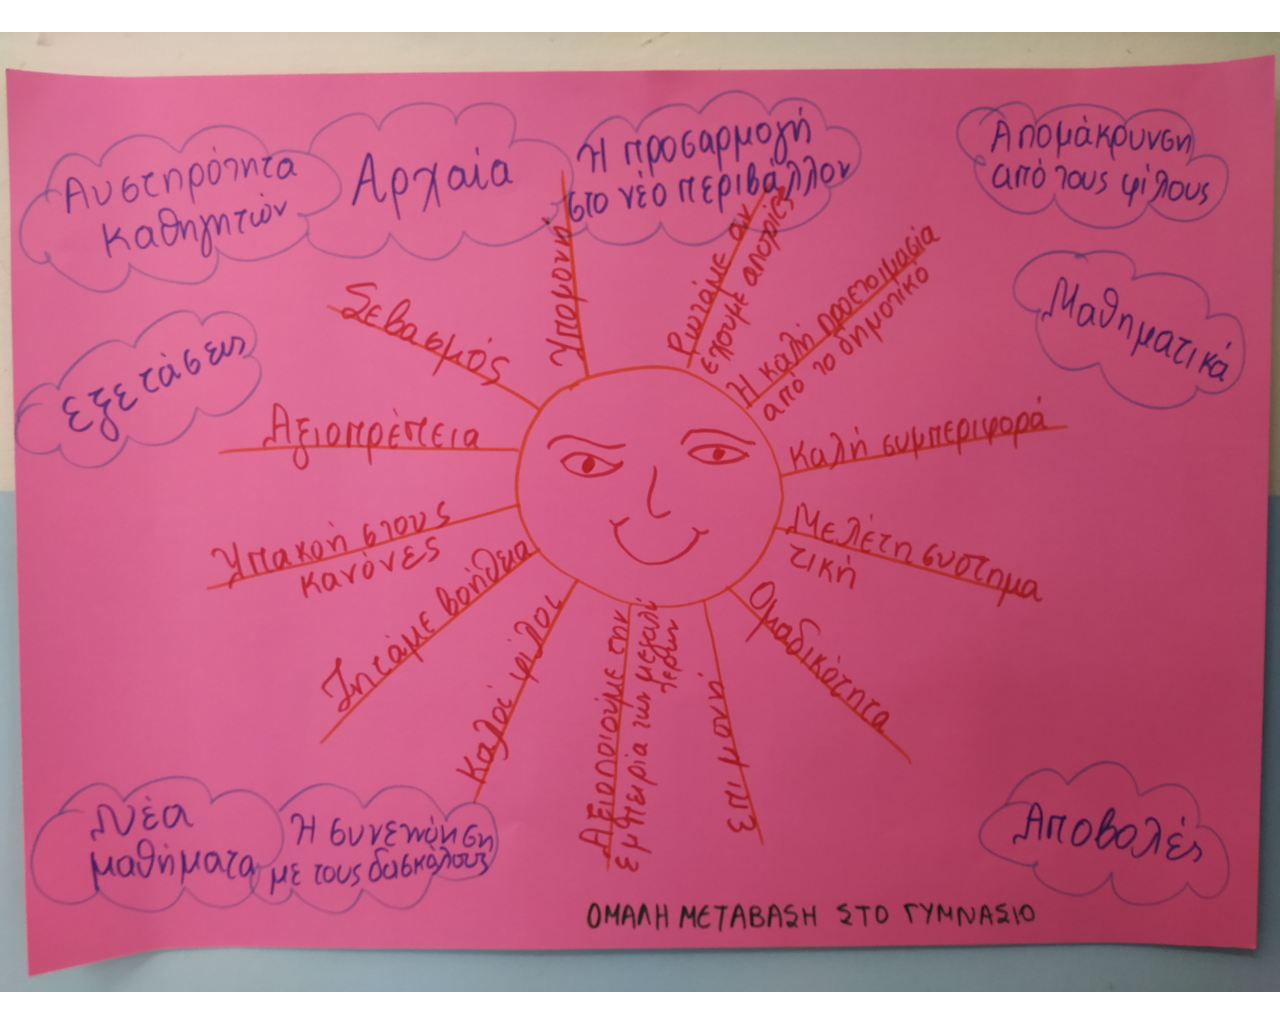 Αυστηρότητα
καθηγητών
Αρχαία
Η προσαρμογή
στο νέο περιβάλλον
Απομάκρυνση
από τους φίλους
Εξετάσεις
Μαθηματικά
Σεβασμός
Υπομονή
Ρωτάμε αν
έχουμε απορίες
Η καλή προετοιμασία
από το δημοτικό
Αξιοπρέπεια
Καλή συμπεριφορά
Υπακοή στους
κανόνες
Μελέτη συστημα
τική
Ζητάμε βοήθεια
Καλοί φίλοι
Αξιοποιούμε την
εμπειρία των μεγαλύ
τερων
Επιμονή
Ομαδικότητα
Νέα
μαθήματα
Η συνεννόηση
με τους δασκάλους
Αποβολές
ΟΜΑΛΗ ΜΕΤΑΒΑΣΗ ΣΤΟ ΓΥΜΝΑΣΙΟ